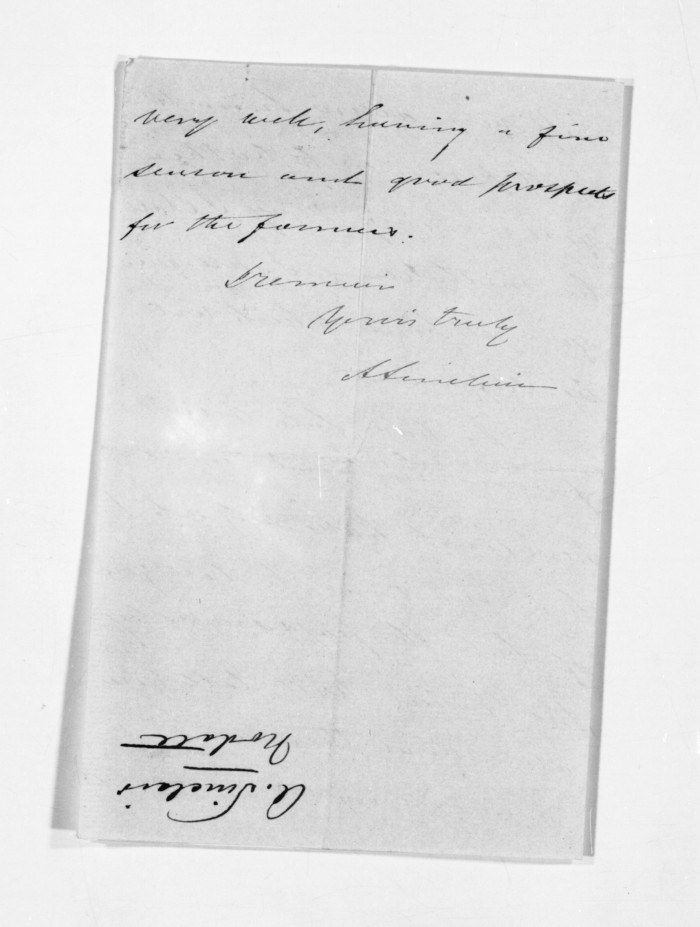 very well, having a fine
season and good prospects
for the farmers.
I remain
Yours truly
A Sinclair
A. Sinclair
No date